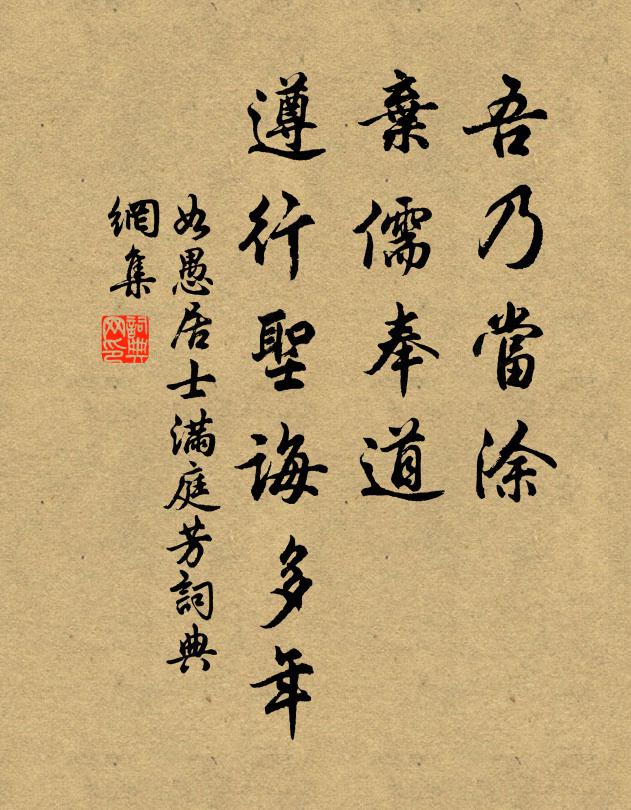 吾乃當涂
棄儒奉道
遵行聖誨多年
如愚居士滿庭芳詞典
網集
詞典
网印